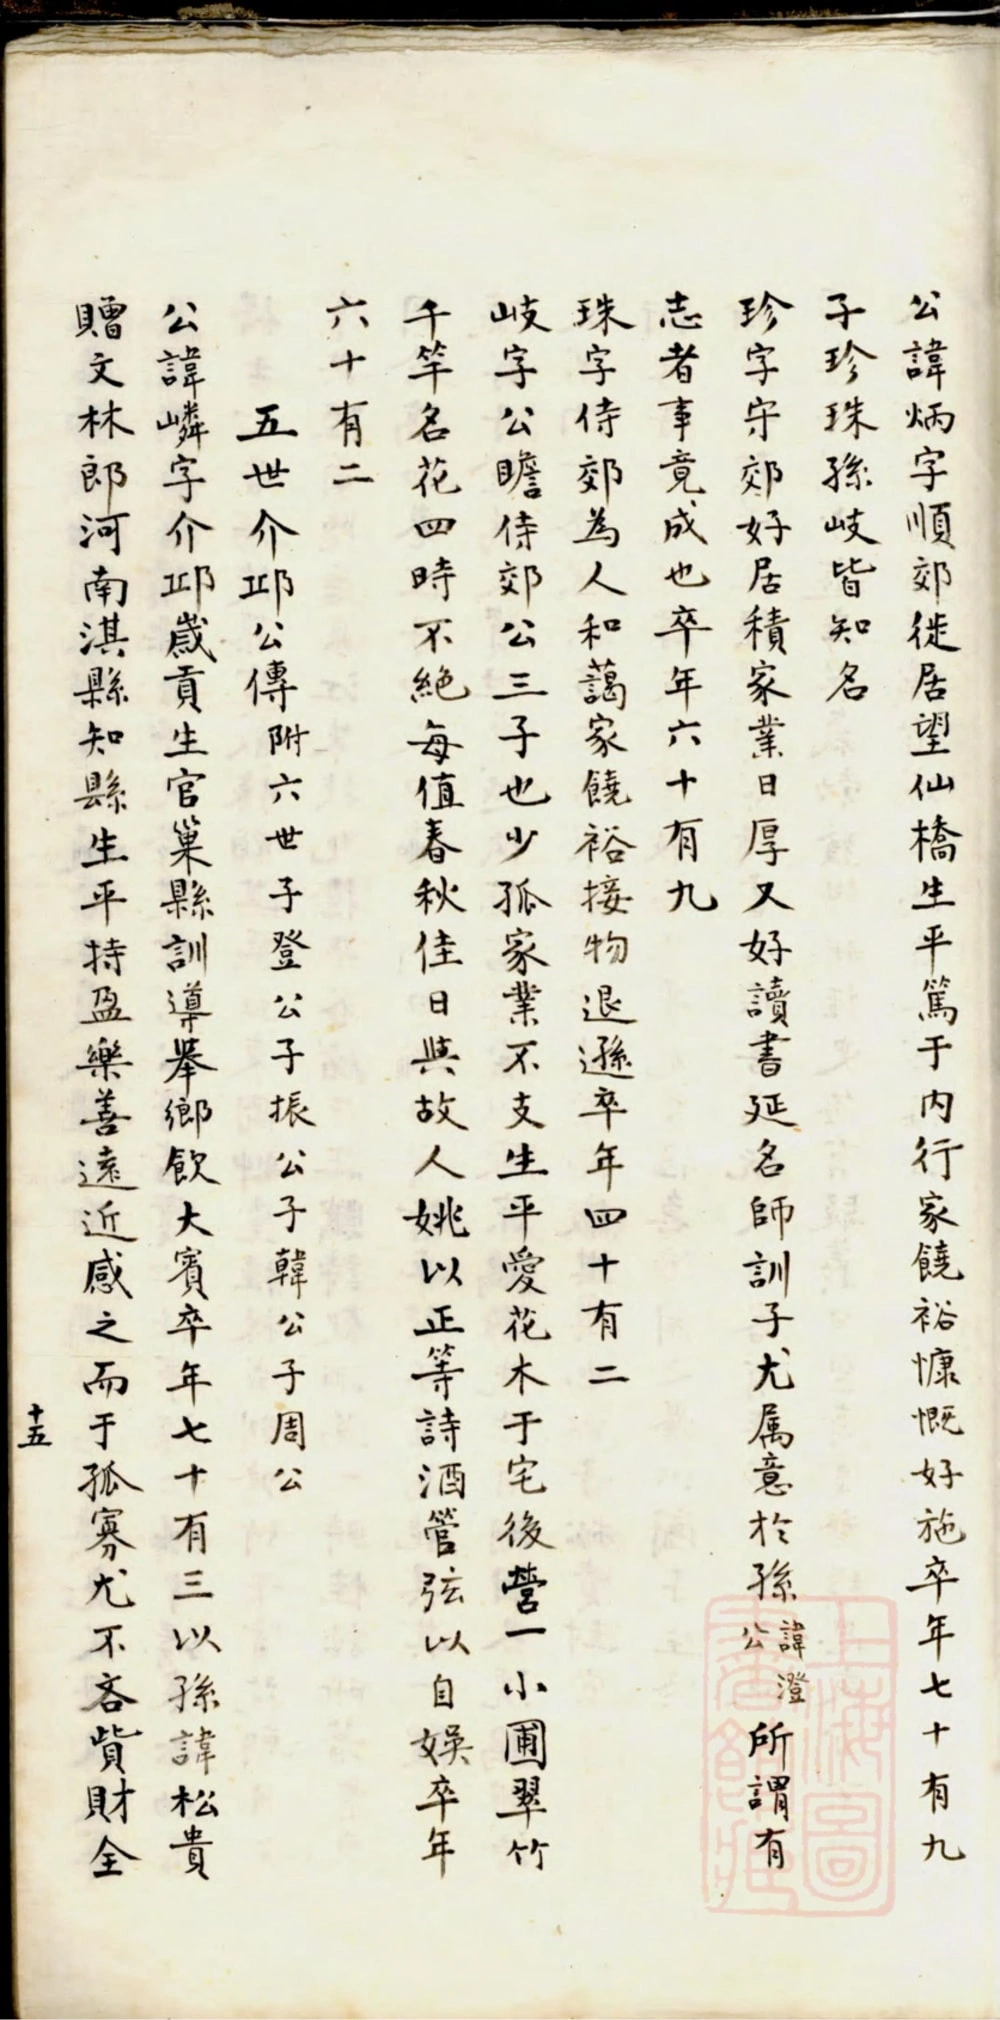 公諱炳字順郊徙居望仙橋生平篤于內行家饒裕慷慨好施卒年七十有九
子珍珠孫岐皆知名
珍字守郊好居積家業日厚又好讀書延名師訓子尤属意於孫諱澄公所謂有
志者事竟成也卒年六十有九
珠字侍郊為人和藹家饒裕接物退遜卒年四十有二
岐字公瞻侍郊公三子也少孤家業不支生平愛花木于宅後營一小圃翠竹
千竿名花四時不絕每值春秋佳日與故人姚以正等詩酒管弦以自娛卒年
六十有二
五世介邱公傳附六世子登公子振公子韓公子周公
公諱嶙字介邱歲貢生官巢縣訓導舉鄉飲大賓卒年七十有三以孫諱松貴
贈文林郎河南淇縣知縣生平持盈樂善遠近感之而于孤寡尤不吝貲財全
十五
上海圖書館藏